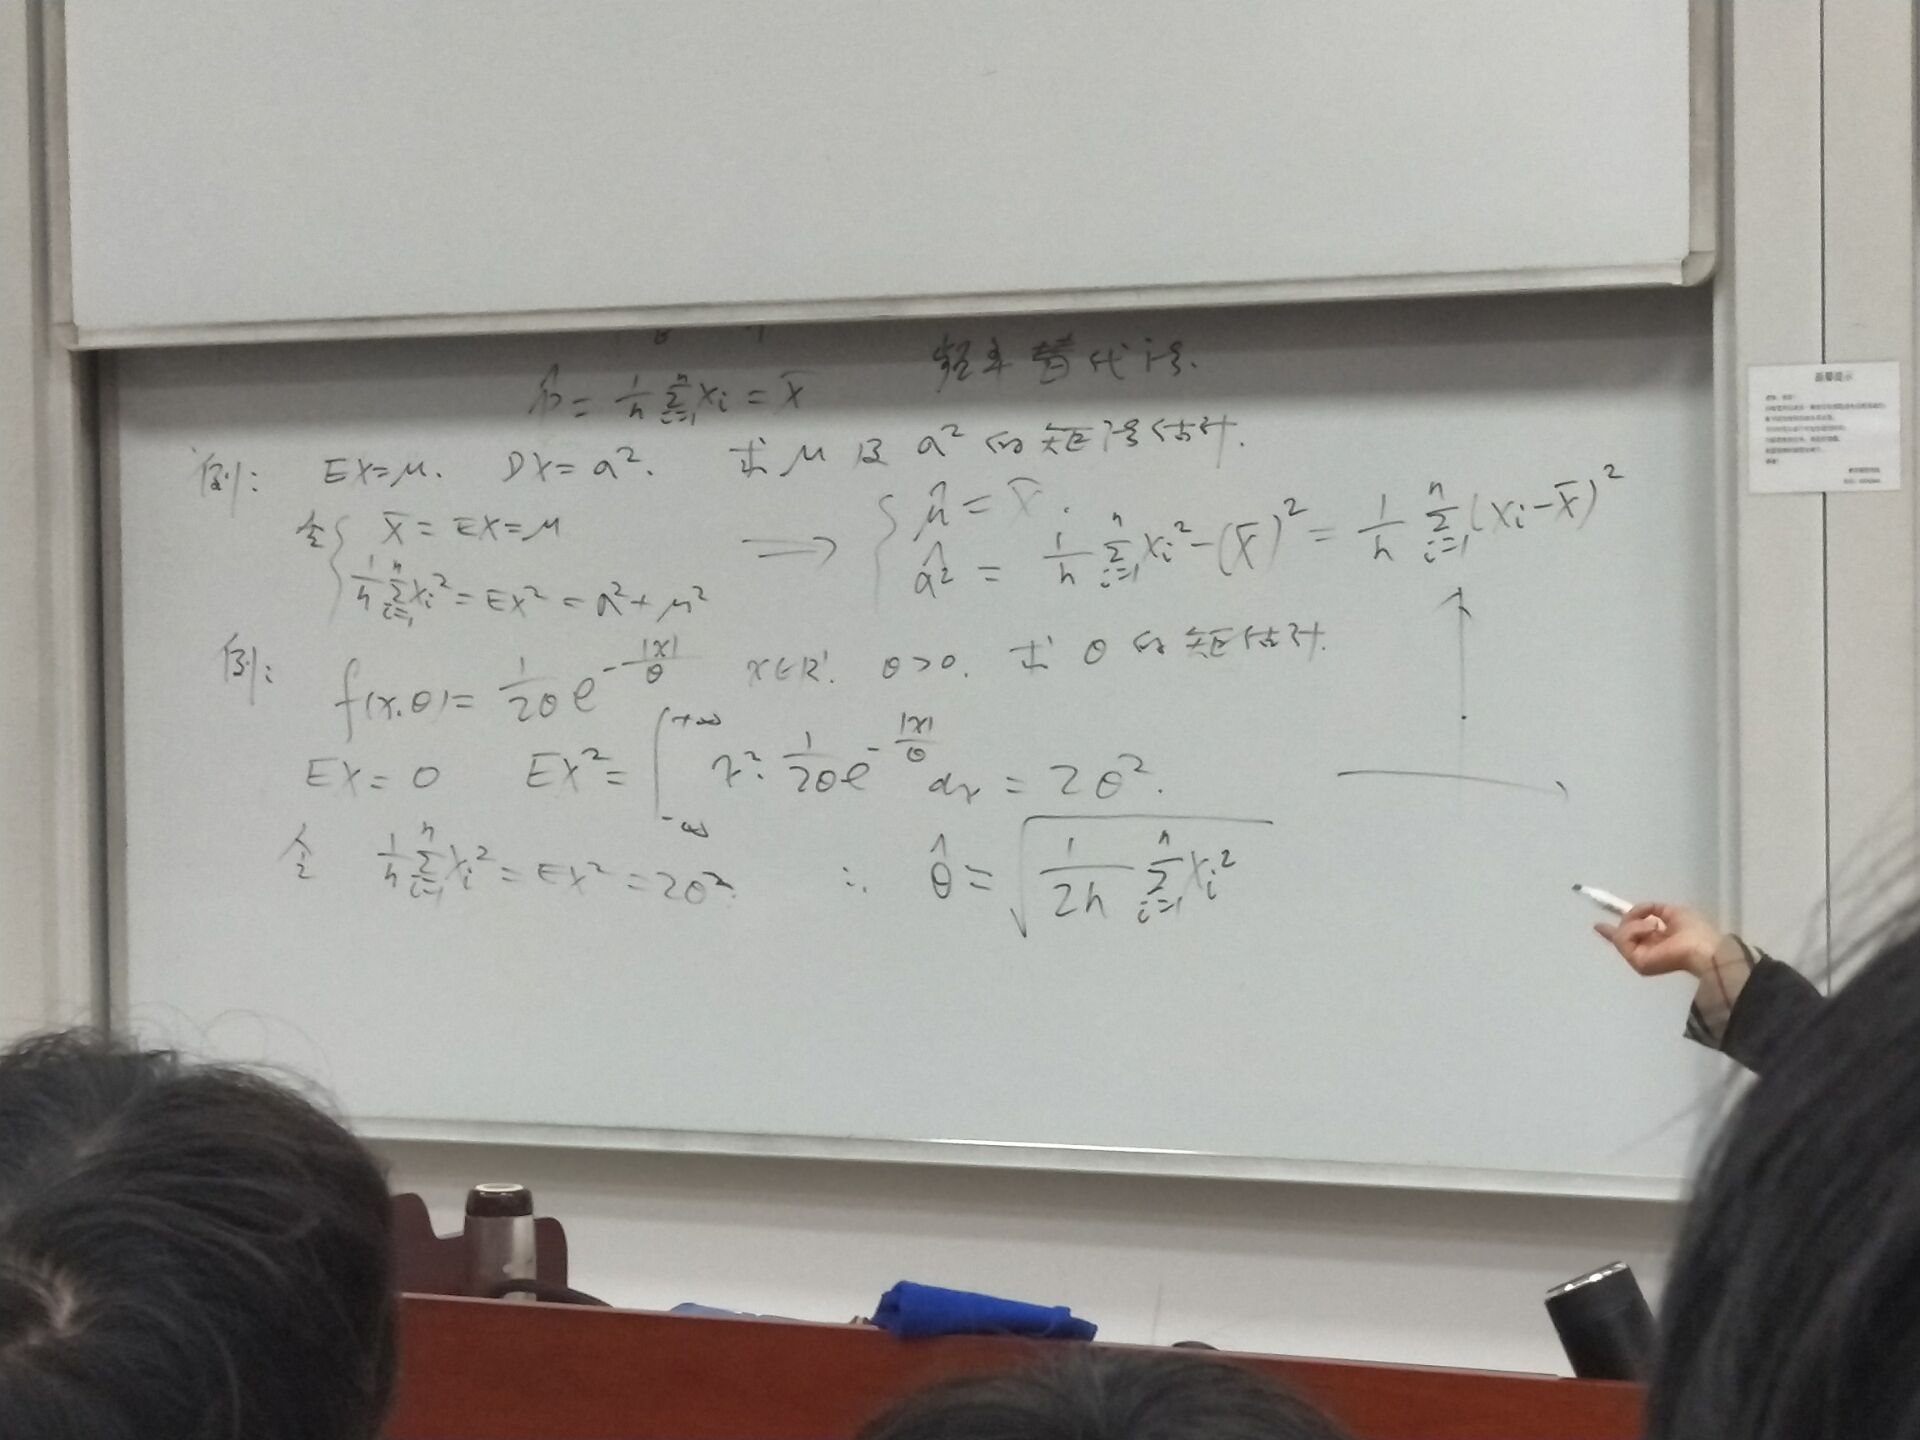 p̂ = 1/n ∑_{i=1}^{n} Xi = X̄ 频率替代法.
例: EX=μ. DX=σ². 求 μ 及 σ² 的矩法估计.
令 { X̄ = EX=μ ⟹ { μ̂ = X̄.
1/n ∑_{i=1}^{n} Xi² = EX² = σ²+μ² σ̂² = 1/n ∑_{i=1}^{n} Xi² − (X̄)² = 1/n ∑_{i=1}^{n} (Xi−X̄)²
例: f(x,θ) = 1/2θ e^{−|x|/θ} x∈R¹. θ>0. 求 θ 的矩估计.
EX = 0 EX² = ∫_{−∞}^{+∞} x²· 1/2θ e^{−|x|/θ} dx = 2θ².
令 1/n ∑_{i=1}^{n} Xi² = EX² = 2θ². ∴ θ̂ = √(1/2n ∑_{i=1}^{n} Xi²)
温馨提示